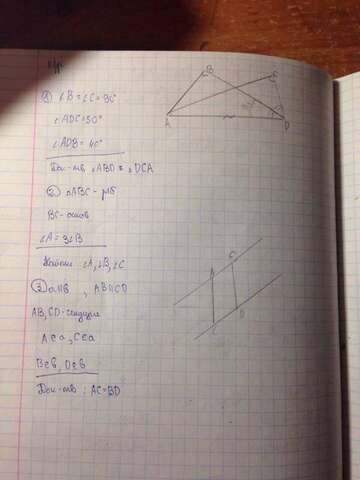 B
C
A
D
① ∠B = ∠C = 90°
∠ADC = 50°
∠ADB = 40°
Док-ть ΔABD = ΔDCA
② ΔABC - р/б
BC - основ
∠A = 3∠B
Найти ∠A, ∠B, ∠C
③ a || b , AB || CD
AB, CD - секущие
A ∈ a, C ∈ a
B ∈ b, D ∈ b
Док-ть : AC = BD
C
A
D